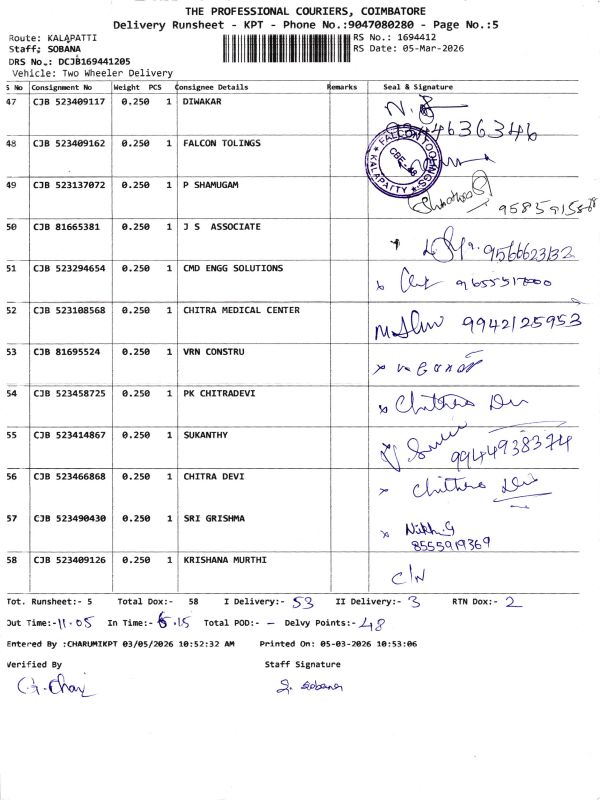 THE PROFESSIONAL COURIERS, COIMBATORE
Delivery Runsheet - KPT - Phone No.:9047080280 - Page No.:5
Route: KALAPATTI
RS No.: 1694412
Staff: SOBANA
RS Date: 05-Mar-2026
DRS No.: DCJB169441205
Vehicle: Two Wheeler Delivery
S No Consignment No Weight PCS Consignee Details Remarks Seal & Signature
47 CJB 523409117 0.250 1 DIWAKAR
48 CJB 523409162 0.250 1 FALCON TOLINGS
FALCON TOOLINGS KALAPATTY
49 CJB 523137072 0.250 1 P SHAMUGAM
50 CJB 81665381 0.250 1 J S ASSOCIATE 9566623132
51 CJB 523294654 0.250 1 CMD ENGG SOLUTIONS
52 CJB 523108568 0.250 1 CHITRA MEDICAL CENTER 9942125953
53 CJB 81695524 0.250 1 VRN CONSTRU
54 CJB 523458725 0.250 1 PK CHITRADEVI Chithra Devi
55 CJB 523414867 0.250 1 SUKANTHY 9944938374
56 CJB 523466868 0.250 1 CHITRA DEVI Chithra Devi
57 CJB 523490430 0.250 1 SRI GRISHMA Nikh.G
8555919369
58 CJB 523409126 0.250 1 KRISHANA MURTHI C/N
Tot. Runsheet:- 5 Total Dox:- 58 I Delivery:- 53 II Delivery:- 3 RTN Dox:- 2
Out Time:- 11.05 In Time:- 6.15 Total POD:- - Delvy Points:- 48
Entered By :CHARUMIKPT 03/05/2026 10:52:32 AM Printed On: 05-03-2026 10:53:06
Verified By Staff Signature
S. Sobana